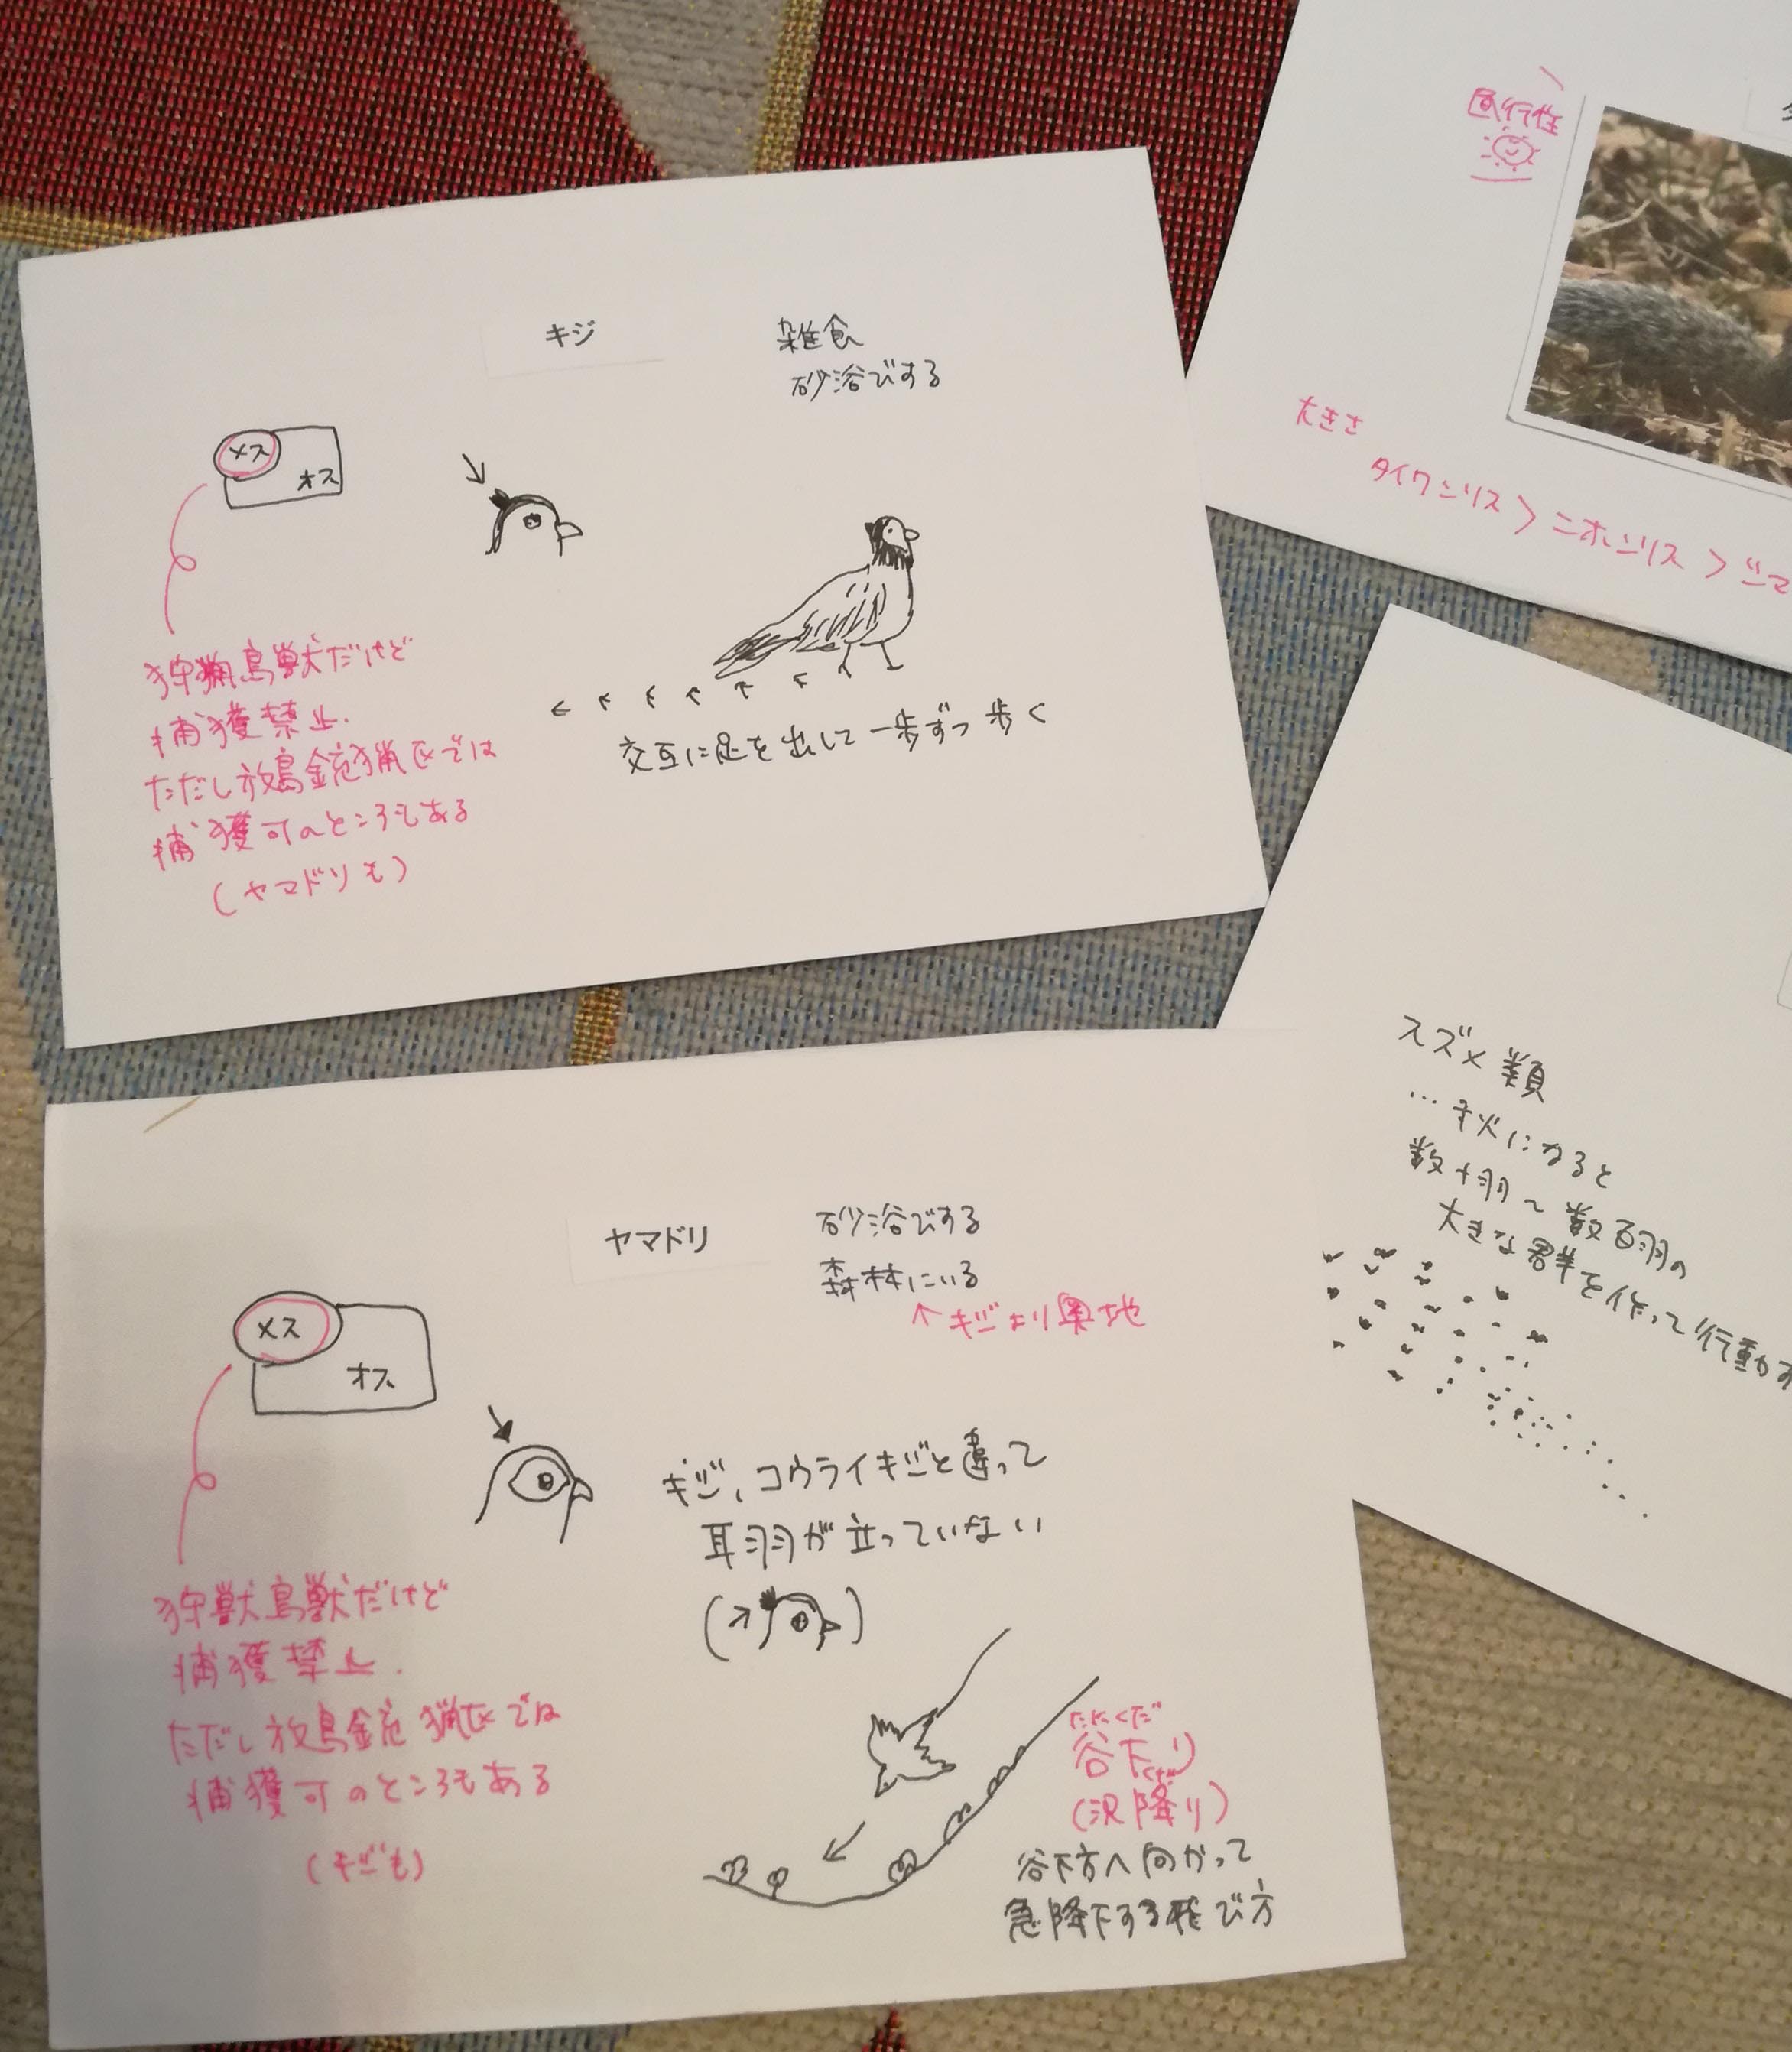 キジ
雑食
砂浴びする
メス
オス
狩猟鳥獣だけど
捕獲禁止.
ただし放鳥銃猟区では
捕獲可のところもある
(ヤマドリも)
交互に足を出して一歩ずつ歩く
ヤマドリ
砂浴びする
森林にいる
↑キジより奥地
メス
オス
キジ、コウライキジと違って
耳羽が立っていない
狩獣鳥獣だけど
捕獲禁止.
ただし放鳥銃猟区では
捕獲可のところもある
(キジも)
たにくだ
谷下り
(沢降り)
谷下方へ向かって
急降下する飛び方
行性
大きさ
タイワンリス>ニホンリス>シマ
スズメ類
…秋になると
数十羽~数百羽の
大きな群を作って行動す